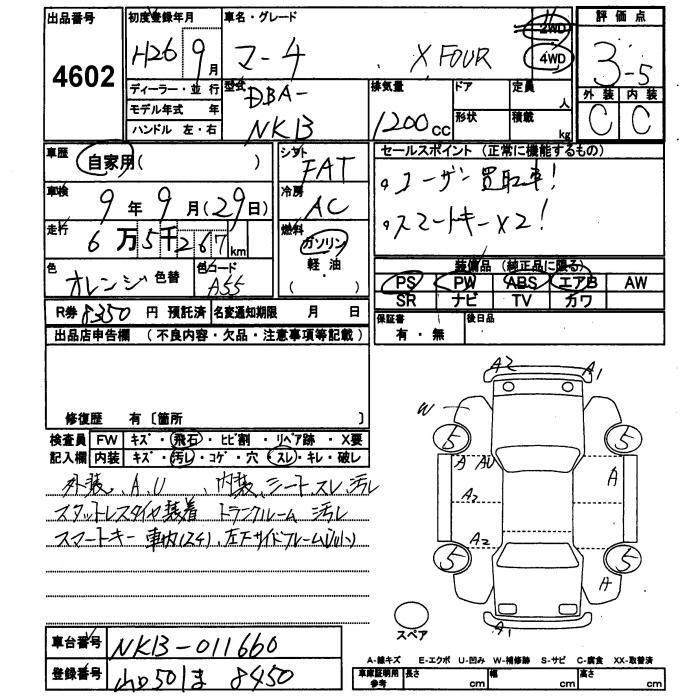 出品番号 4602
初度登録年月 H26 9月
ディーラー・並行
モデル年式 年
ハンドル 左・右
車名・グレード
マーチ X FOUR 2WD 4WD
型式 DBA-NK13
排気量 1200cc
ドア 形状
定員 人
積載 kg
評価点 3-5
外装 内装
C C
車歴 自家用( )
車検 9年9月(29日)
走行 6万5千267km
色 オレンジ 色替 色コード A55
シフト FAT
冷房 AC
燃料 ガソリン 軽・油
セールスポイント (正常に機能するもの)
。ユーザー買取車!
。スマートキーX2!
装備品 (純正品に限る)
PS PW ABS エアB AW
SR ナビ TV カワ
R券 8350 円 預託済 名変通知期限 月 日
保証書 有・無 後日品
出品店申告欄 (不良内容・欠品・注意事項等記載)
修復歴 有〔箇所 〕
検査員記入欄 FW キズ・飛石・ヒビ割・リペア跡・X要
内装 キズ・汚レ・コゲ・穴・スレ・キレ・破レ
外装、A、U 内装、シートスレ、汚レ
スタットレスタイヤ装着 トランクルーム汚レ
スマートキー車内(2ケ)、左下サイドフレーム
A2 A1
W
5 5
A AU A
A2
A2
5 5
A
A1
スペア
車台番号 NK13-011660
登録番号 山口 501 ま 8450
A-線キズ E-エクボ U-凹み W-補修跡 S-サビ C-腐食 XX-取替済
車庫証明用参考 長さ cm 幅 cm 高さ cm